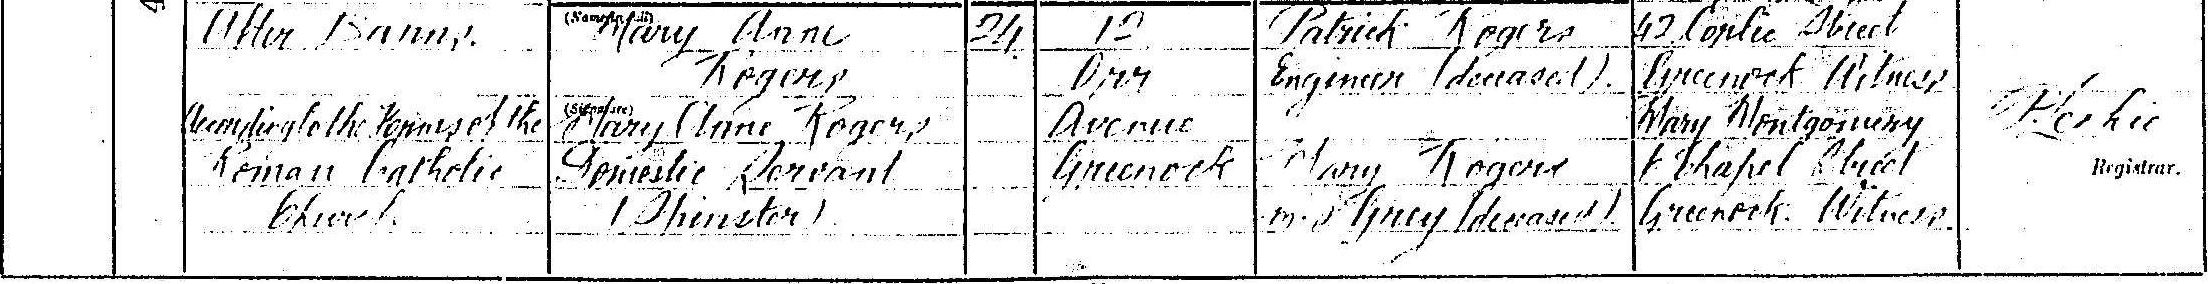 After Banns.
According to the Forms of the
Roman Catholic
Church
(Name in full)
Mary Anne
Rogers
(Signature)
Mary Anne Rogers
Domestic Servant
(Spinster)
24
12
Orr
Avenue
Greenock
Patrick Rogers
Engineer (deceased).
Mary Rogers
m.s Grey (deceased).
42 Street
Greenock Witness
Mary Montgomery
Chapel Street
Greenock. Witness
Registrar.